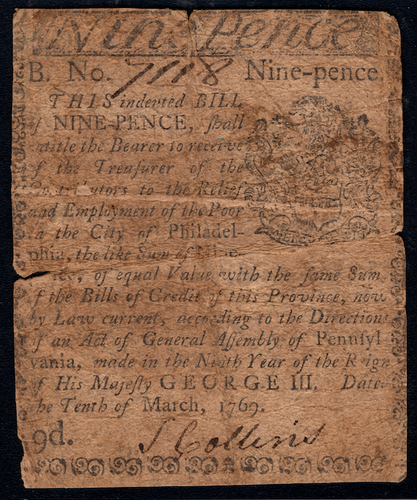 Nine Pence
B. No. 7118 Nine-pence.
THIS indented BILL
of NINE-PENCE, ſhall
entitle the Bearer to receive
of the Treaſurer of the
Contributors to the Relief
and Employment of the Poor
in the City of Philadel-
phia, the like Sum of Nine-
pence, of equal Value with the ſame Sum
of the Bills of Credit of this Province, now
by Law current, according to the Directions
of an Act of General Aſſembly of Pennſyl
vania, made in the Ninth Year of the Reign
of His Majeſty GEORGE III. Dated
the Tenth of March, 1769.
9d. J Collins